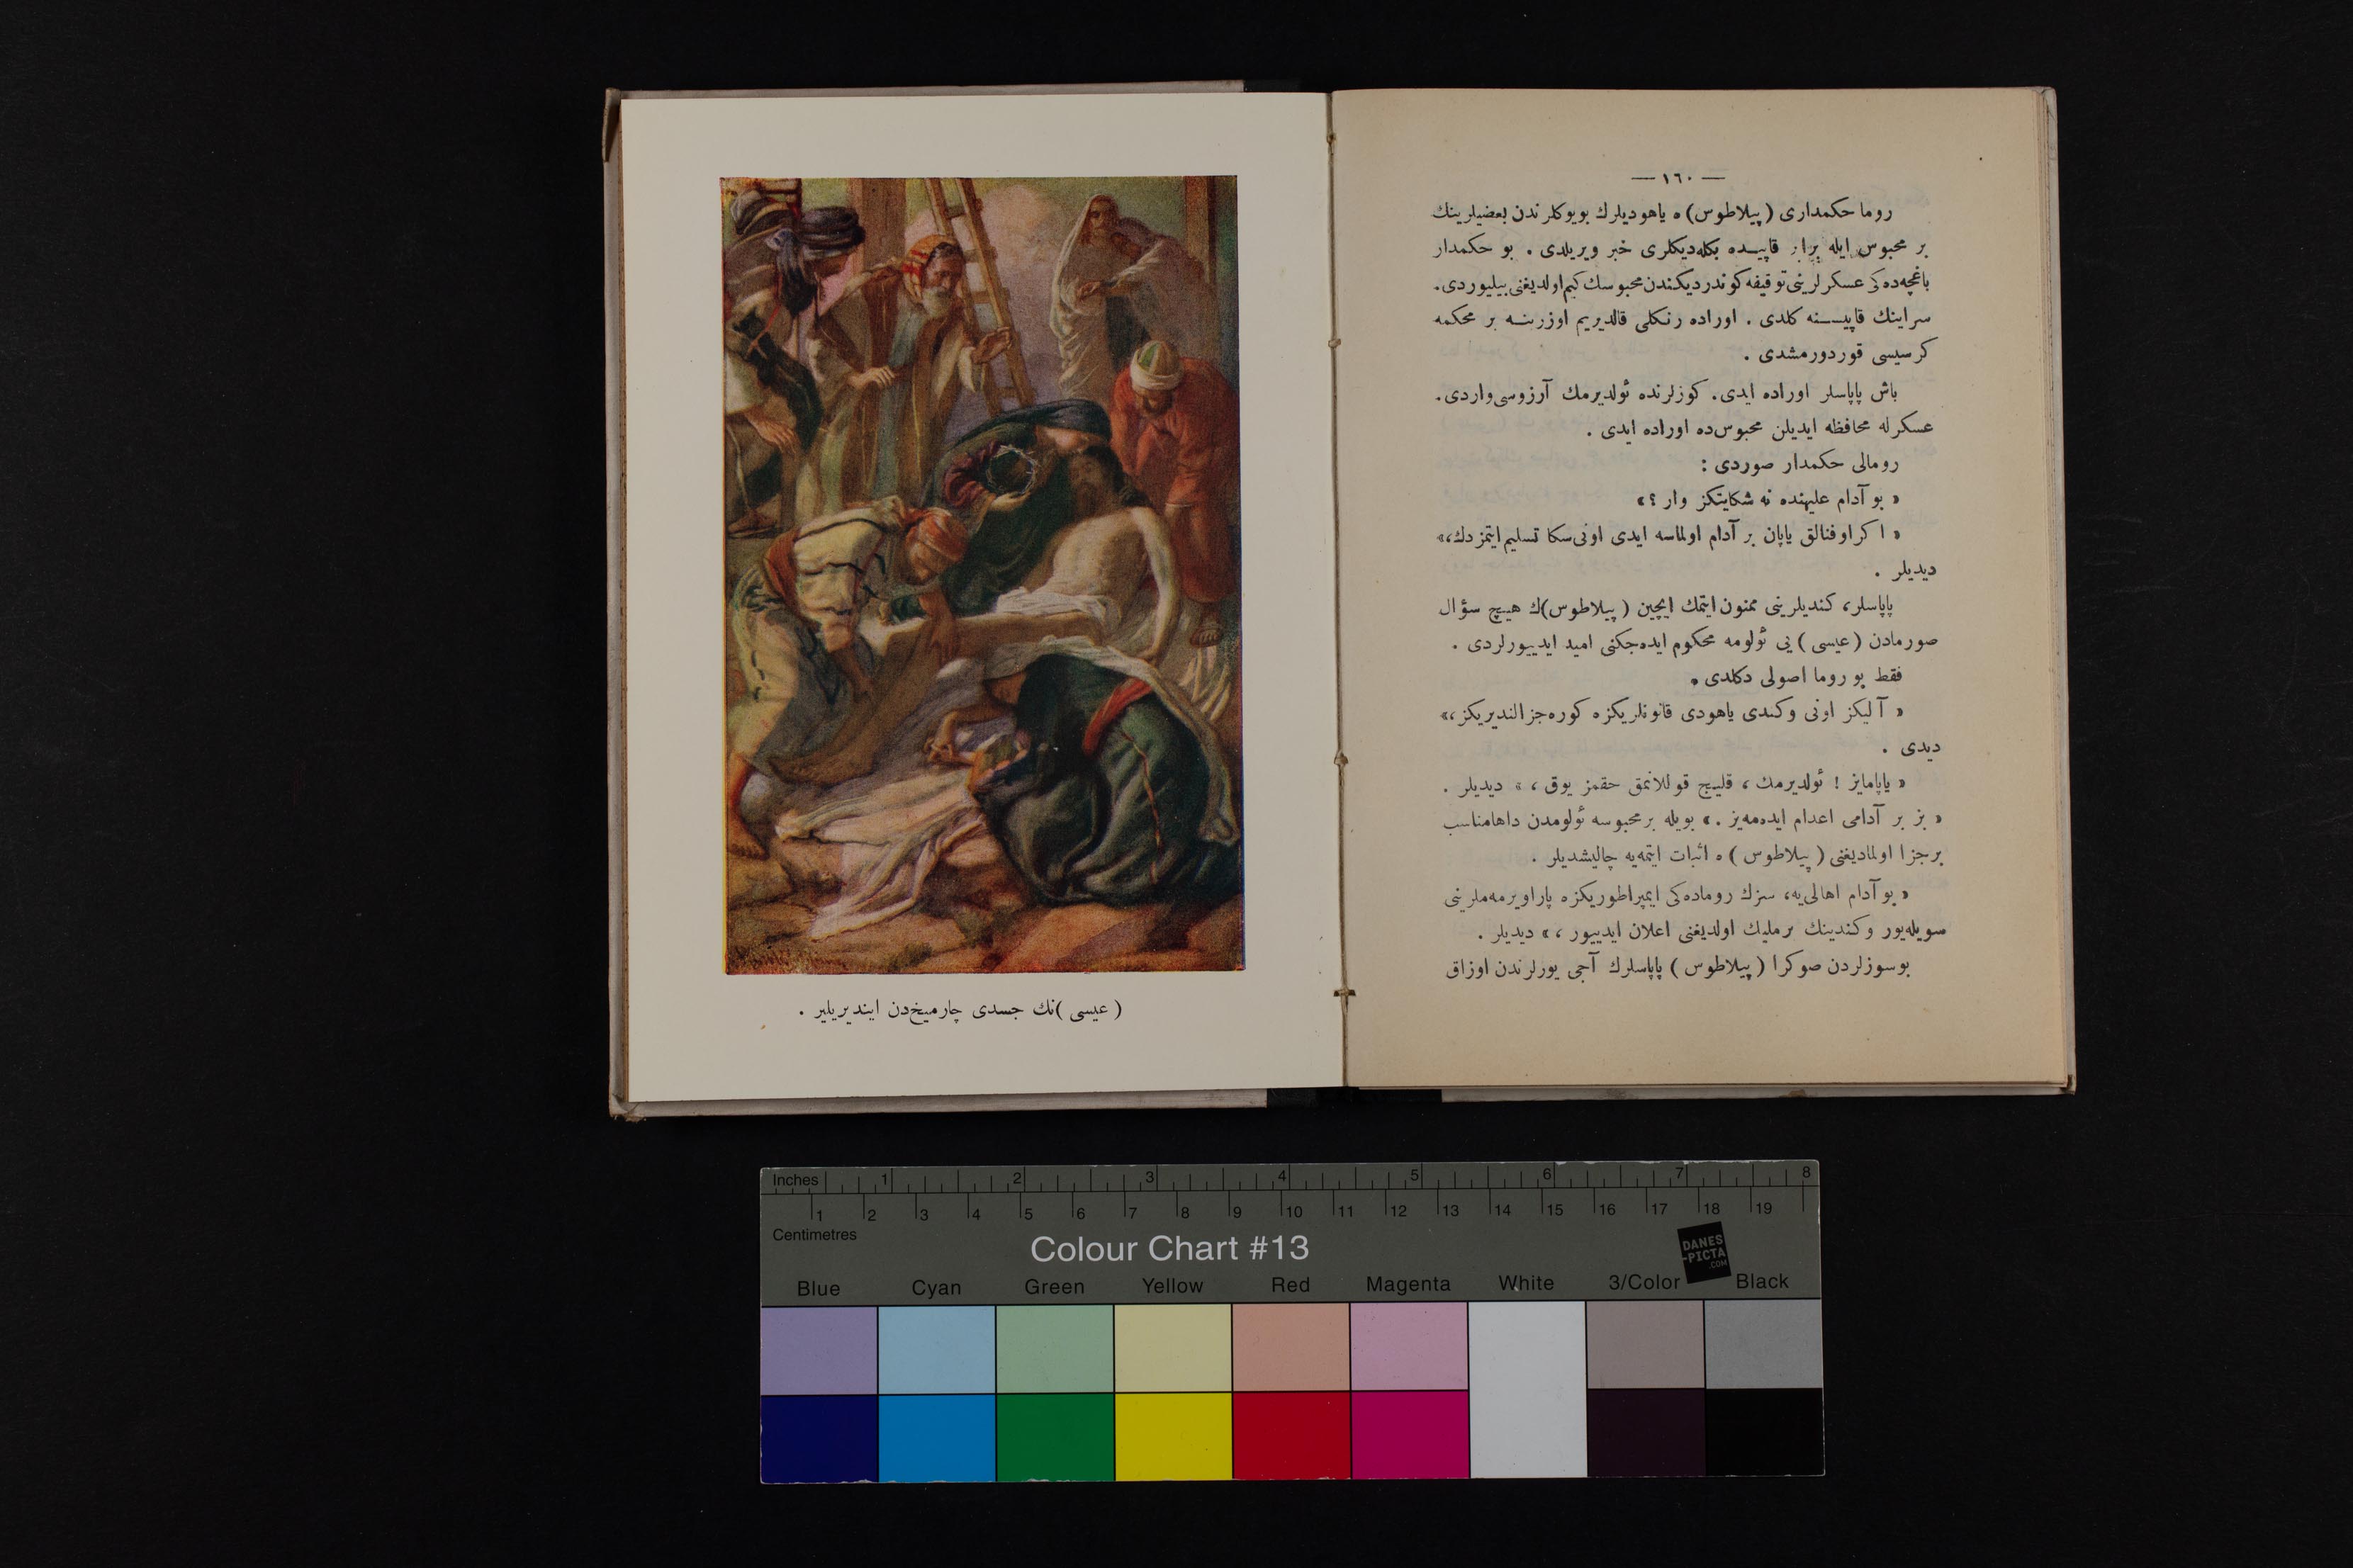 — ١٦٠ —
روما حكمداری ( پیلاطوس ) ه یاهودیلرك بویوكلرندن بعضیلرینك
بر محبوس ایله برابر قاپیـده بكله‌دیكلری خبر ویریلدی . بو حكمدار
باغچه‌ده‌كی عسكرلرینی توقیفه كوندردیكندن محبوسك كیم اولدیغنی بیلیوردی .
سراینك قاپیـسنه كلدی . اوراده رنكلی قالدیریم اوزرینـه بر محكمه
كرسیسی قوردورمشدی .
باش پاپاسلر اوراده ایدی . كوزلرنده ئولدیرمك آرزوسی واردی .
عسكرله محافظه ایدیلن محبوس‌ده اوراده ایدی .
رومالی حكمدار صوردی :
« بو آدام علیهنده نه شكایتكز وار ؟ »
« اكر او فنالق یاپان بر آدام اولماسه ایدی اونی سكا تسلیم ایتمزدك ، »
دیدیلر .
پاپاسلر ، كندیلرینی ممنون ایتمك ایچین ( پیلاطوس ) ك هیچ سؤال
صورمادن ( عیسی ) یی ئولومه محكوم ایده‌جكنی امید ایدییورلردی .
فقط بو روما اصولی دكلدی .
« آلیكز اونی وكندی یاهودی قانونلریكزه كوره جزالندیریكز ، »
دیدی .
« یاپامایز ! ئولدیرمك ، قلیج قوللانمق حقمز یوق ، » دیدیلر .
« بز بر آدامی اعدام ایده‌مه‌یز . » بویله بر محبوسه ئولومدن داها مناسب
بر جزا اولمادیغنی ( پیلاطوس ) ه اثبات ایتمه‌یه چالیشدیلر .
« بو آدام اهالی‌یه ، سزك روماده‌كی ایمپراطوریكزه پارا ویرمه‌ملرینی
سویله‌یور وكندینك بر ملیك اولدیغنی اعلان ایدییور ، » دیدیلر .
بو سوزلردن صوكرا ( پیلاطوس ) پاپاسلرك آجی یوزلرندن اوزاق
( عیسی ) نك جسدی چارمیخ‌دن ایندیریلیر .
Inches 1 2 3 4 5 6 7 8
1 2 3 4 5 6 7 8 9 10 11 12 13 14 15 16 17 18 19
Centimetres
Colour Chart #13
DANES
-PICTA
.COM
Blue Cyan Green Yellow Red Magenta White 3/Color Black